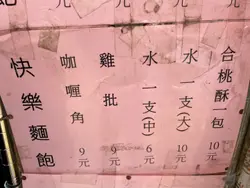 元
元
元
合桃酥一包 10元
水一支(大) 10元
水一支(中) 6元
雞批 9元
咖喱角 9元
快樂麵飽